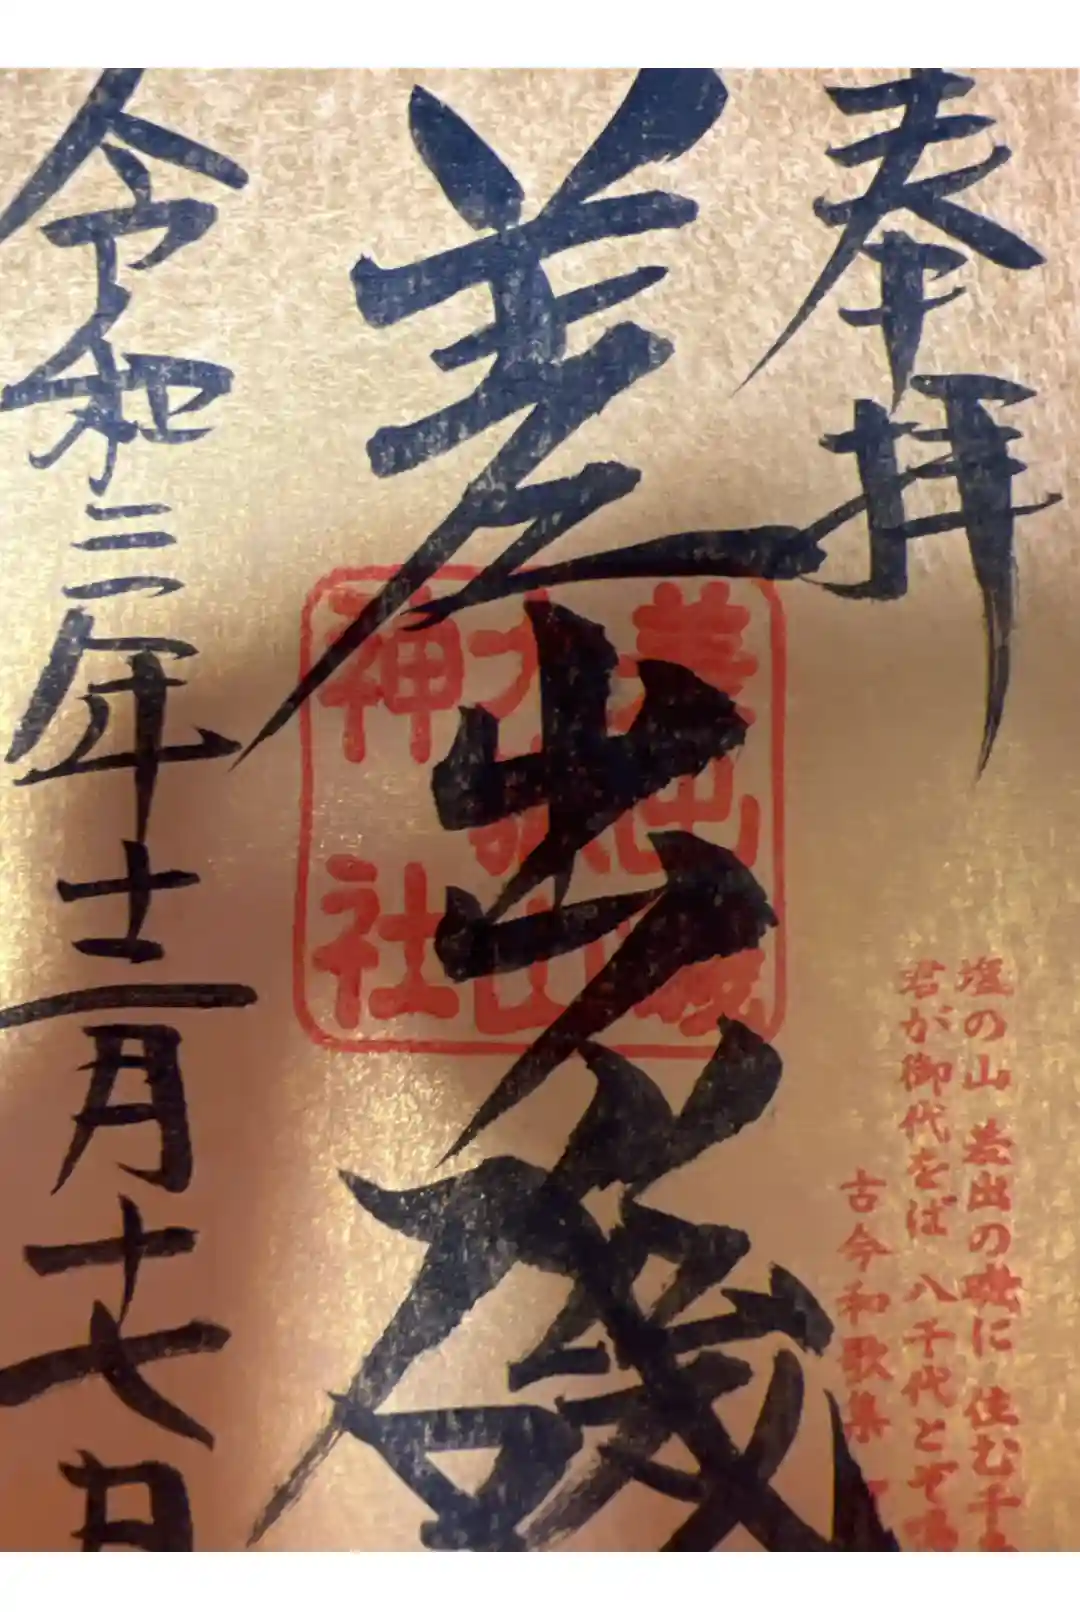 奉拝
差出磯
差出磯
大嶽山
神社
令和三年十二月十七日
塩の山 差出の磯に 住む千
君が御代をば 八千代とぞ鳴
古今和歌集